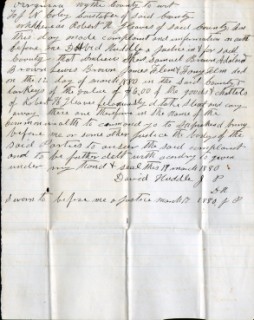 Virginia Wythe County to wit
To J. W. Coley Constable of said County
Whereas Robert H. Graves of said County has
this day made complaint and information on oath
before me David Huddle a Justice of said
County that he believes that Samuel Brown Adeline
Brown James Brown James Allen & Doug Allen did
on the 12 day of march 1880 in the said County 2
turkeys of the value of $6,00 of the goods & chattels
of Robert H. Graves feloniously did take steal and carry
away these are therefore in the name of the
commonwealth to command you to apprehend & bring
before me or some other Justice the body of the
said Parties to answer the said complaint
and to be further delt with according to given
under my hand & seal this 17 march 1880
David Huddle J P
Sworn to before me a Justice march 17 1880 J P